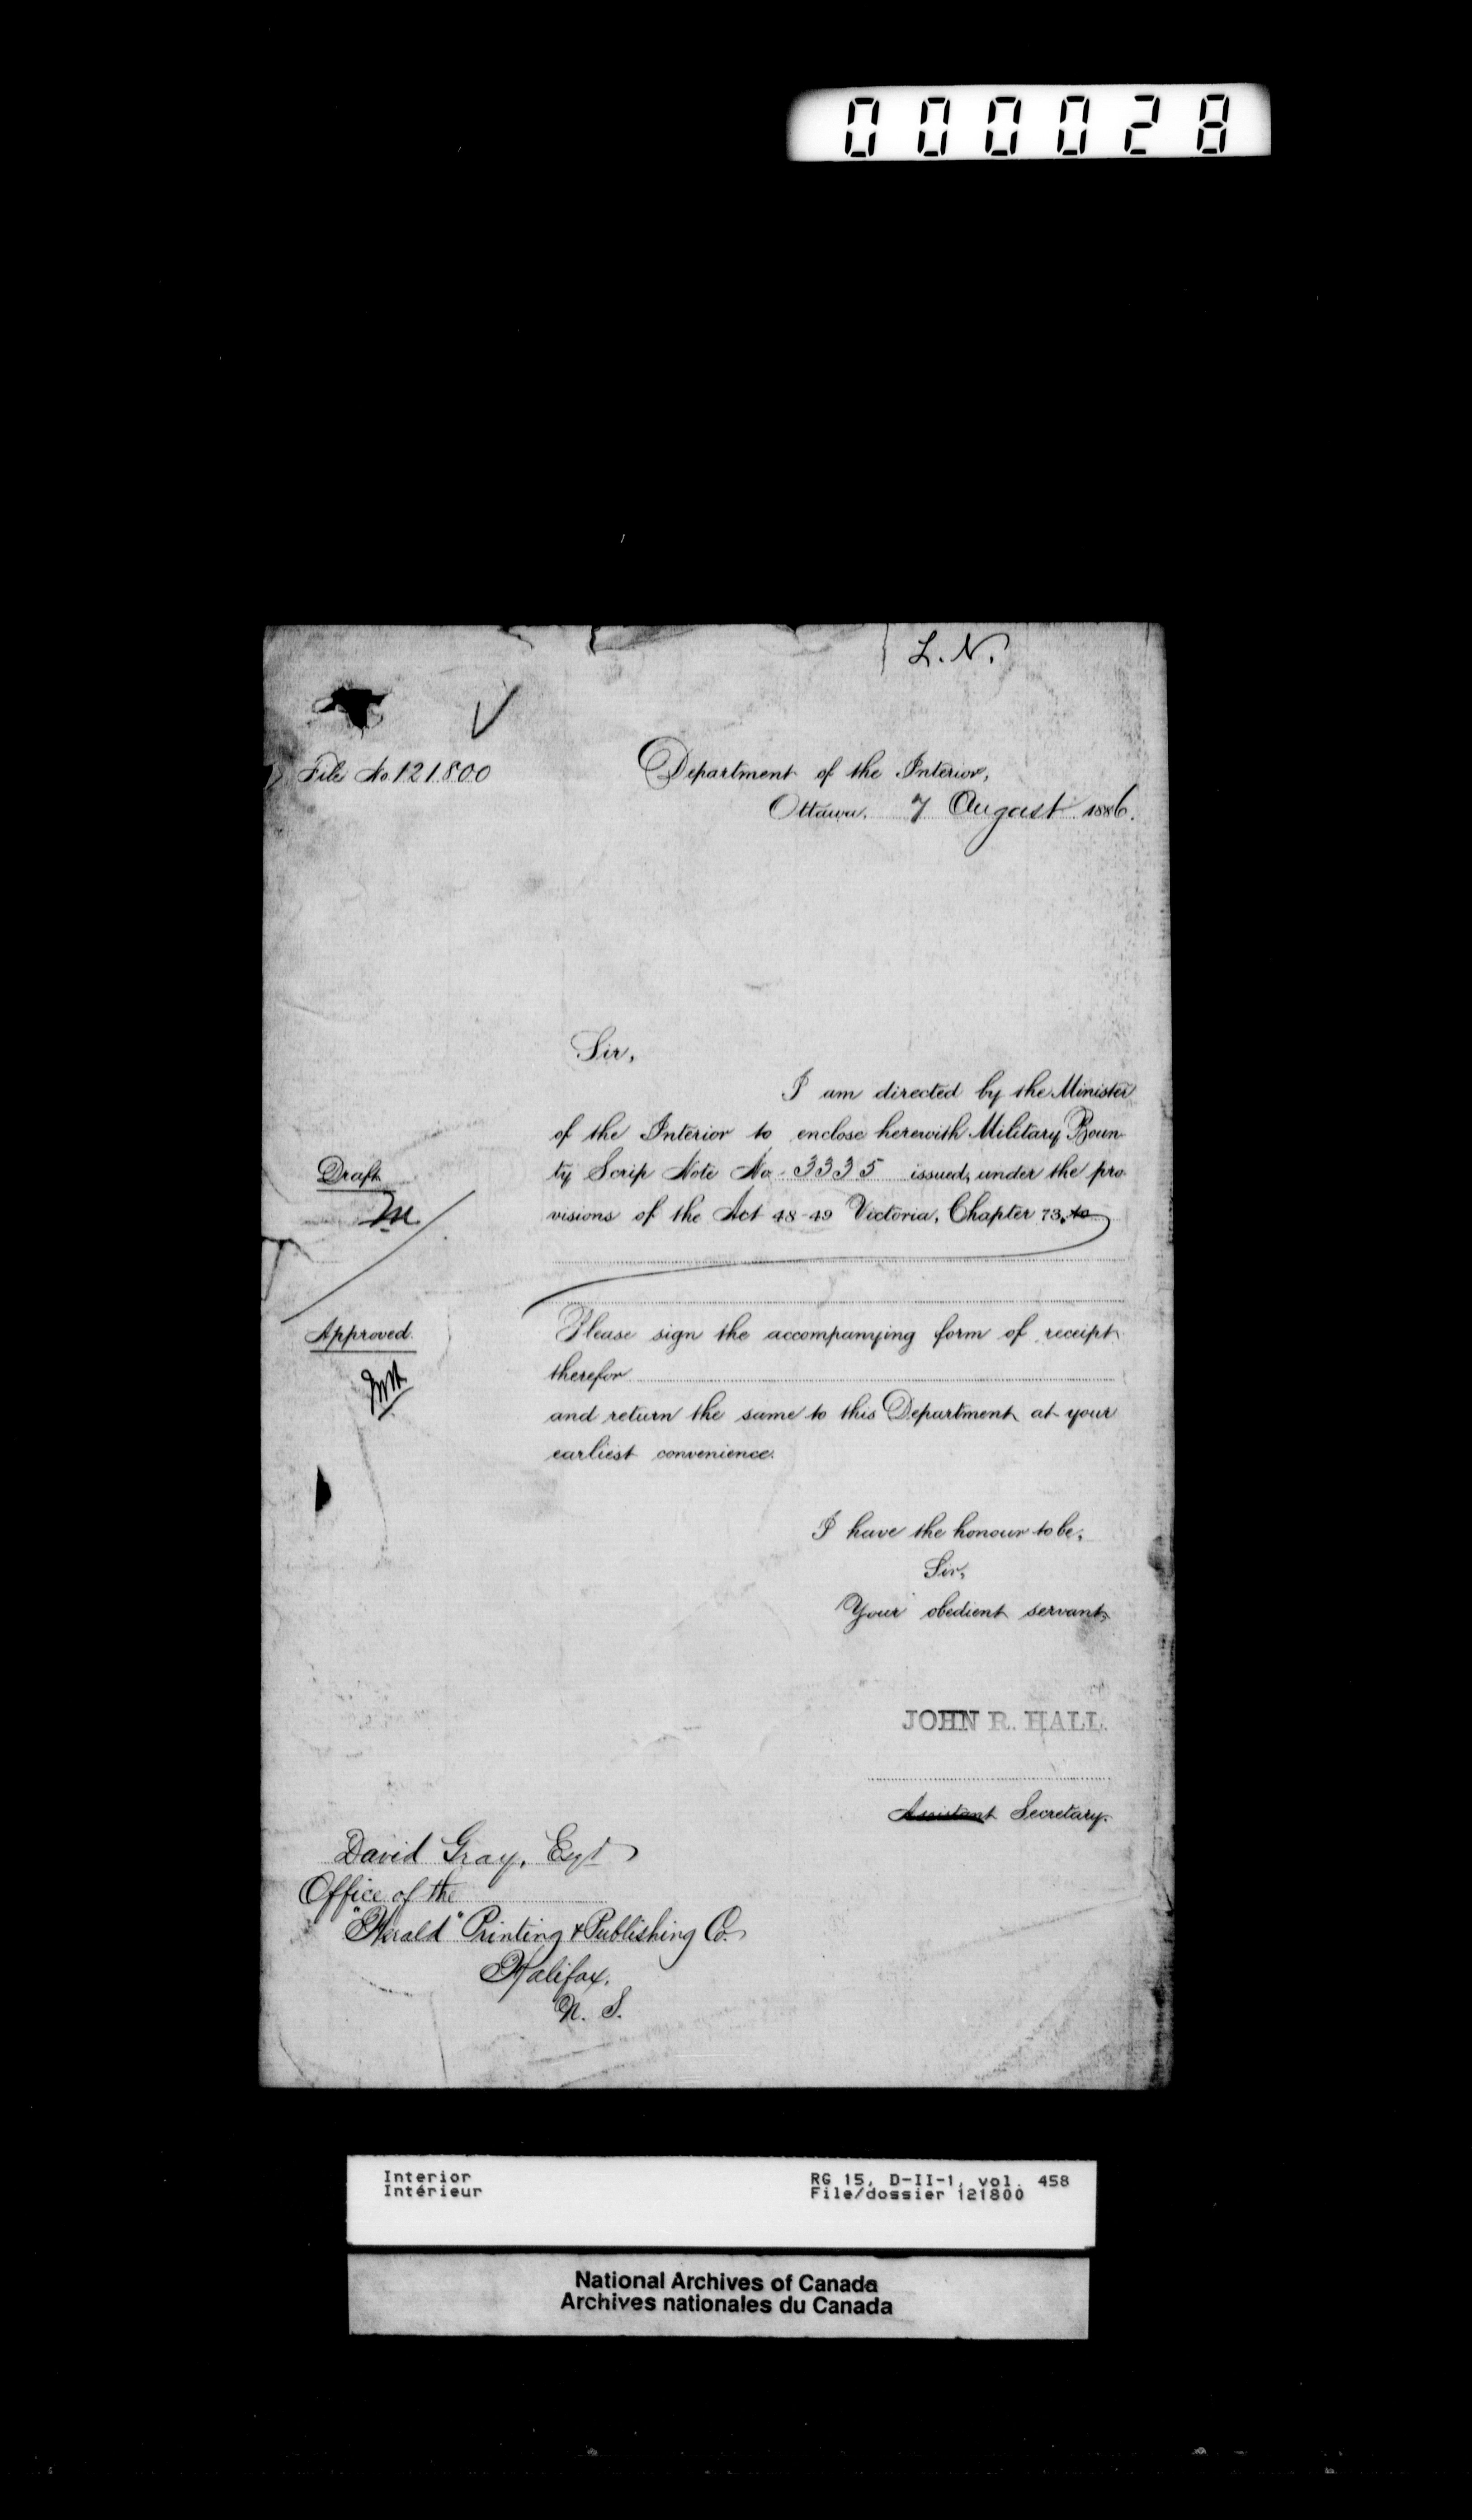 000028
L. N.
File No. 121.800
Department of the Interior,
Ottawa, 7 August 1886.
Sir,
I am directed by the Minister
of the Interior to enclose herewith Military Boun-
ty Scrip Note No. 3335 issued, under the pro-
visions of the Act 48-49 Victoria, Chapter 73, to
Draft
Approved.
Please sign the accompanying form of receipt
therefor
and return the same to this Department at your
earliest convenience.
I have the honour to be,
Sir,
Your obedient servant,
JOHN R. HALL.
Assistant Secretary.
David Gray, Esqr
Office of the
"Herald" Printing & Publishing Co.
Halifax,
N. S.
Interior
Intérieur
RG 15, D-II-1, vol. 458
File/dossier 121800
National Archives of Canada
Archives nationales du Canada